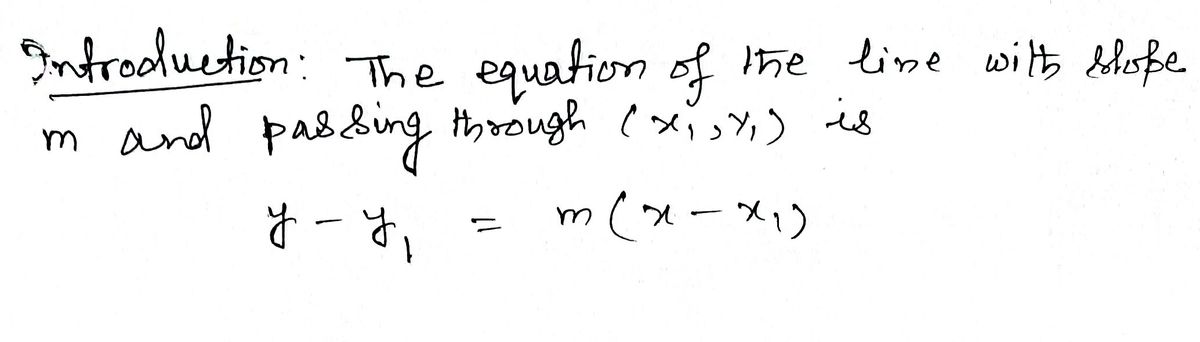 Introduction: The equation of the line with slope
m and passing through (x₁, y₁) is
y - y₁ = m(x - x₁)